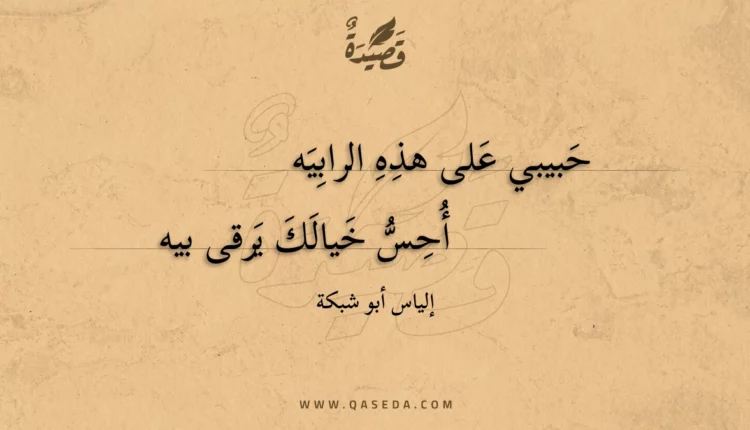 قَصِيدَةٌ
حَبيبي عَلى هذِهِ الرابِيَه
أُحِسُّ خَيالَكَ يَرقى بيه
إلياس أبو شبكة
WWW.QASEDA.COM